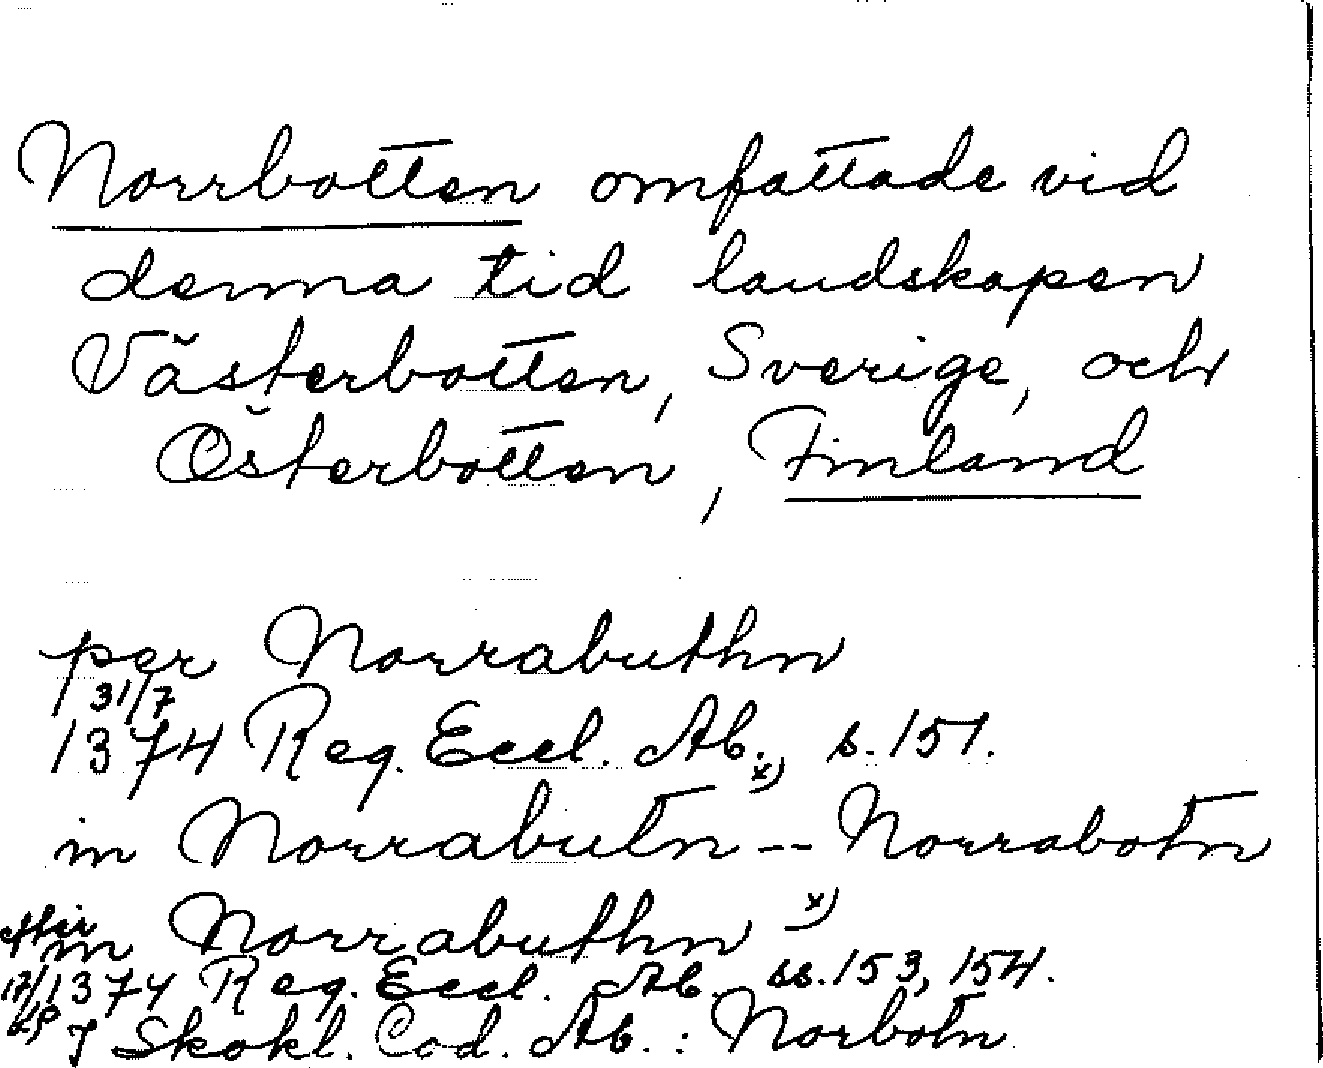 Norrbotten omfattade vid
denna tid landskapen
Västerbotten, Sverige, och
Österbotten, Finland
per Norrabuthn
31/7
1374 Reg. Eccl. Ab., s. 151.
x)
in Norrabutn -- Norrabotn
in Norrabuthn x)
efter
17/1374 Reg. Eccl. Ab. ss. 153, 154.
I Skokl. Cod. Ab. : Norbotn